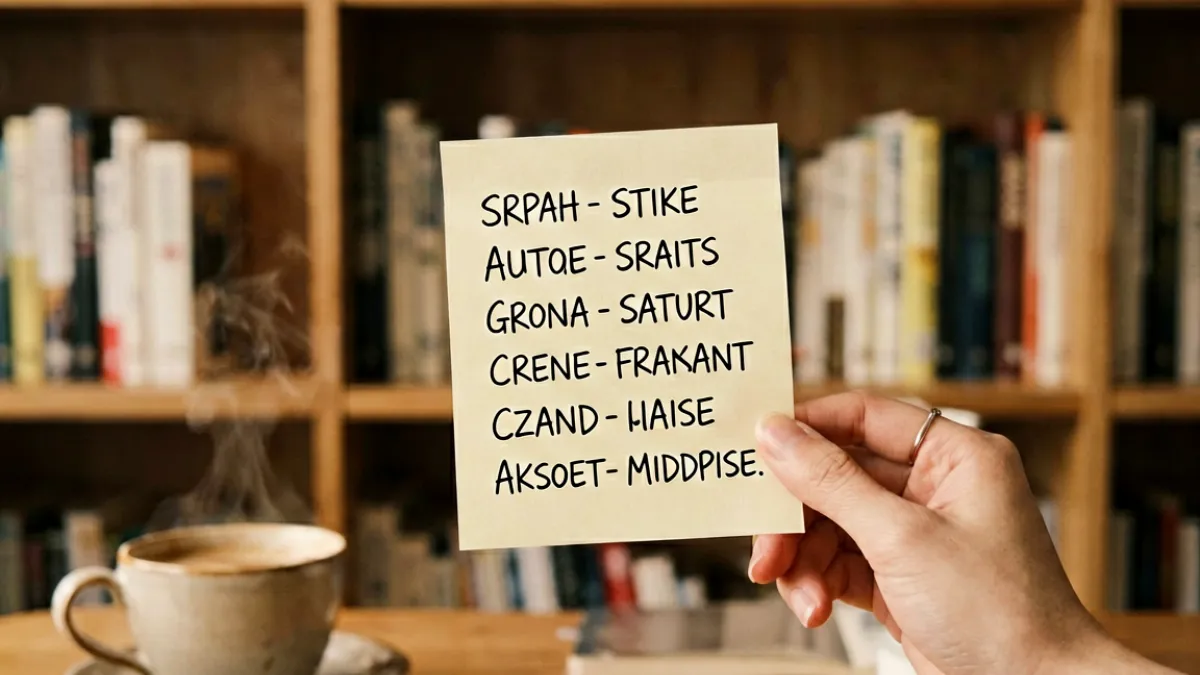 SRPAH - STIKE
AUTQE - SRAITS
GRONA - SATURT
CRENE - FRAKANT
CZAND - HAISE
AKSOET - MIDDPISE.